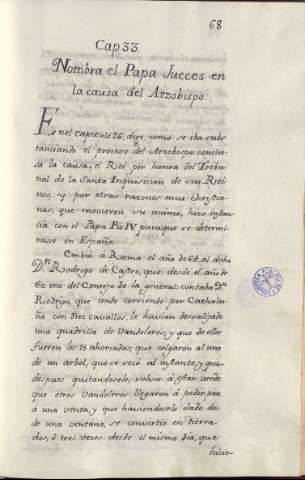 68
Cap 33
Nombra el Papa Jucces en
la causa del Arzobispo.
En el capitulo 26. dixe como se iba subs-
tanciando el proceso del Arzobispo: conclu-
sa la causa, el Rei por honra del Tribu-
nal de la Santa Inquisicion de sus Rei-
nos, y por otras razones mui christia-
nas, que movieron su animo, hizo instan-
cia con el Papa Pio IV paraque se determi-
nasse en España.
Embió a Roma el año de 64 al dicho
Dn. Rodrigo de Castro, que desde el año de
60 era del Consejo de la general: contaba Dn.
Rodrigo, que iendo corriendo por Cathalu-
ña con diez cavallos, le havian desvalijado
una quadrilla de Vandoleros, y que de ellos
fueron los 15 ahorcados; que colgaron al uno
de un arbol, que se secó al instante, y que
despues quitandosele, volvió á estar verde:
que otros Vandoleros llegaron á pedir pan
á una venta, y que haviendoselo dado des-
de una ventana, se convirtio en tierra
dos, ó tres veces desde el mismo dia, que
hicie-